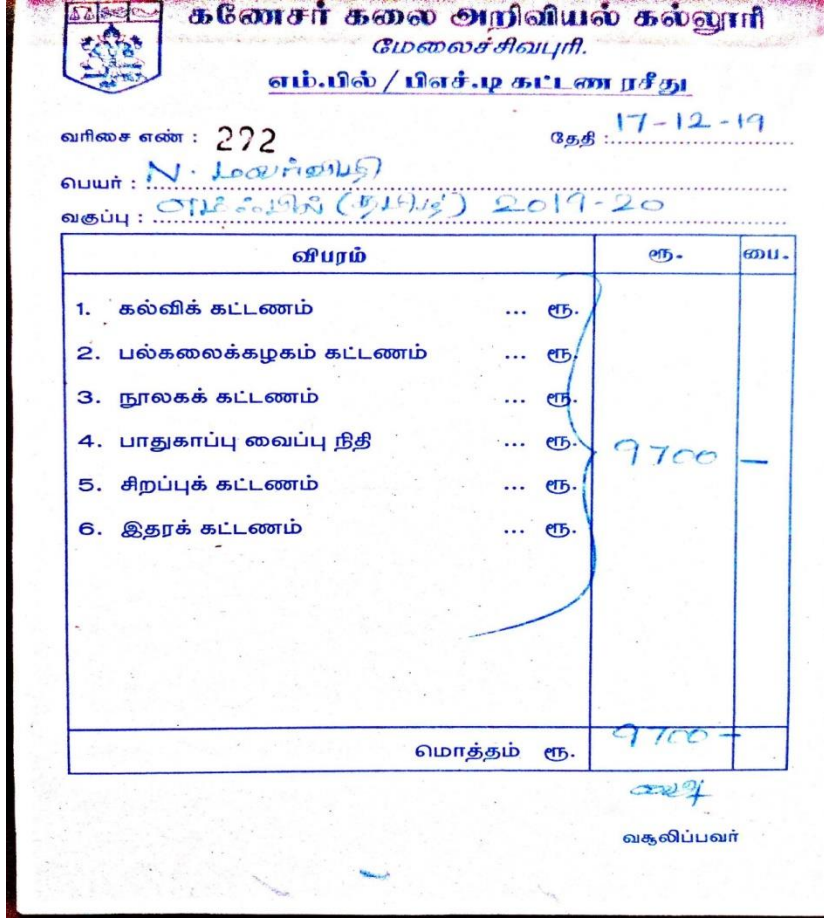 கணேசர் கலை அறிவியல் கல்லூரி
மேலைச்சிவபுரி.
எம்.பில் / பிஎச்.டி கட்டண ரசீது
வரிசை எண் : 272
தேதி : 17-12-19
பெயர் : N.
வகுப்பு : எம்ஃபில் (தமிழ்) 2019-20
விபரம் ரூ. பை.
1. கல்விக் கட்டணம் ... ரூ.
2. பல்கலைக்கழகம் கட்டணம் ... ரூ.
3. நூலகக் கட்டணம் ... ரூ.
4. பாதுகாப்பு வைப்பு நிதி ... ரூ. 9700 –
5. சிறப்புக் கட்டணம் ... ரூ.
6. இதரக் கட்டணம் ... ரூ.
மொத்தம் ரூ. 9700 –
வசூலிப்பவர்